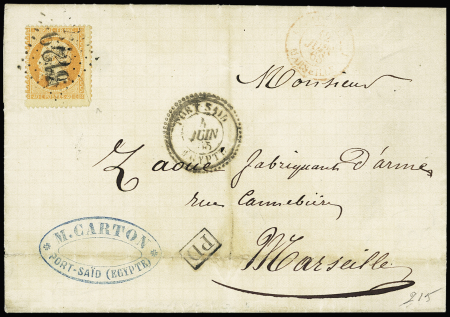 5129
Monsieur
PORT-SAID
4
JUIN
EGYPTE
Zaoué fabriquant d'armes
rue Cannebière
Marseille
M. CARTON
PORT-SAÏD (EGYPTE)
PD
215